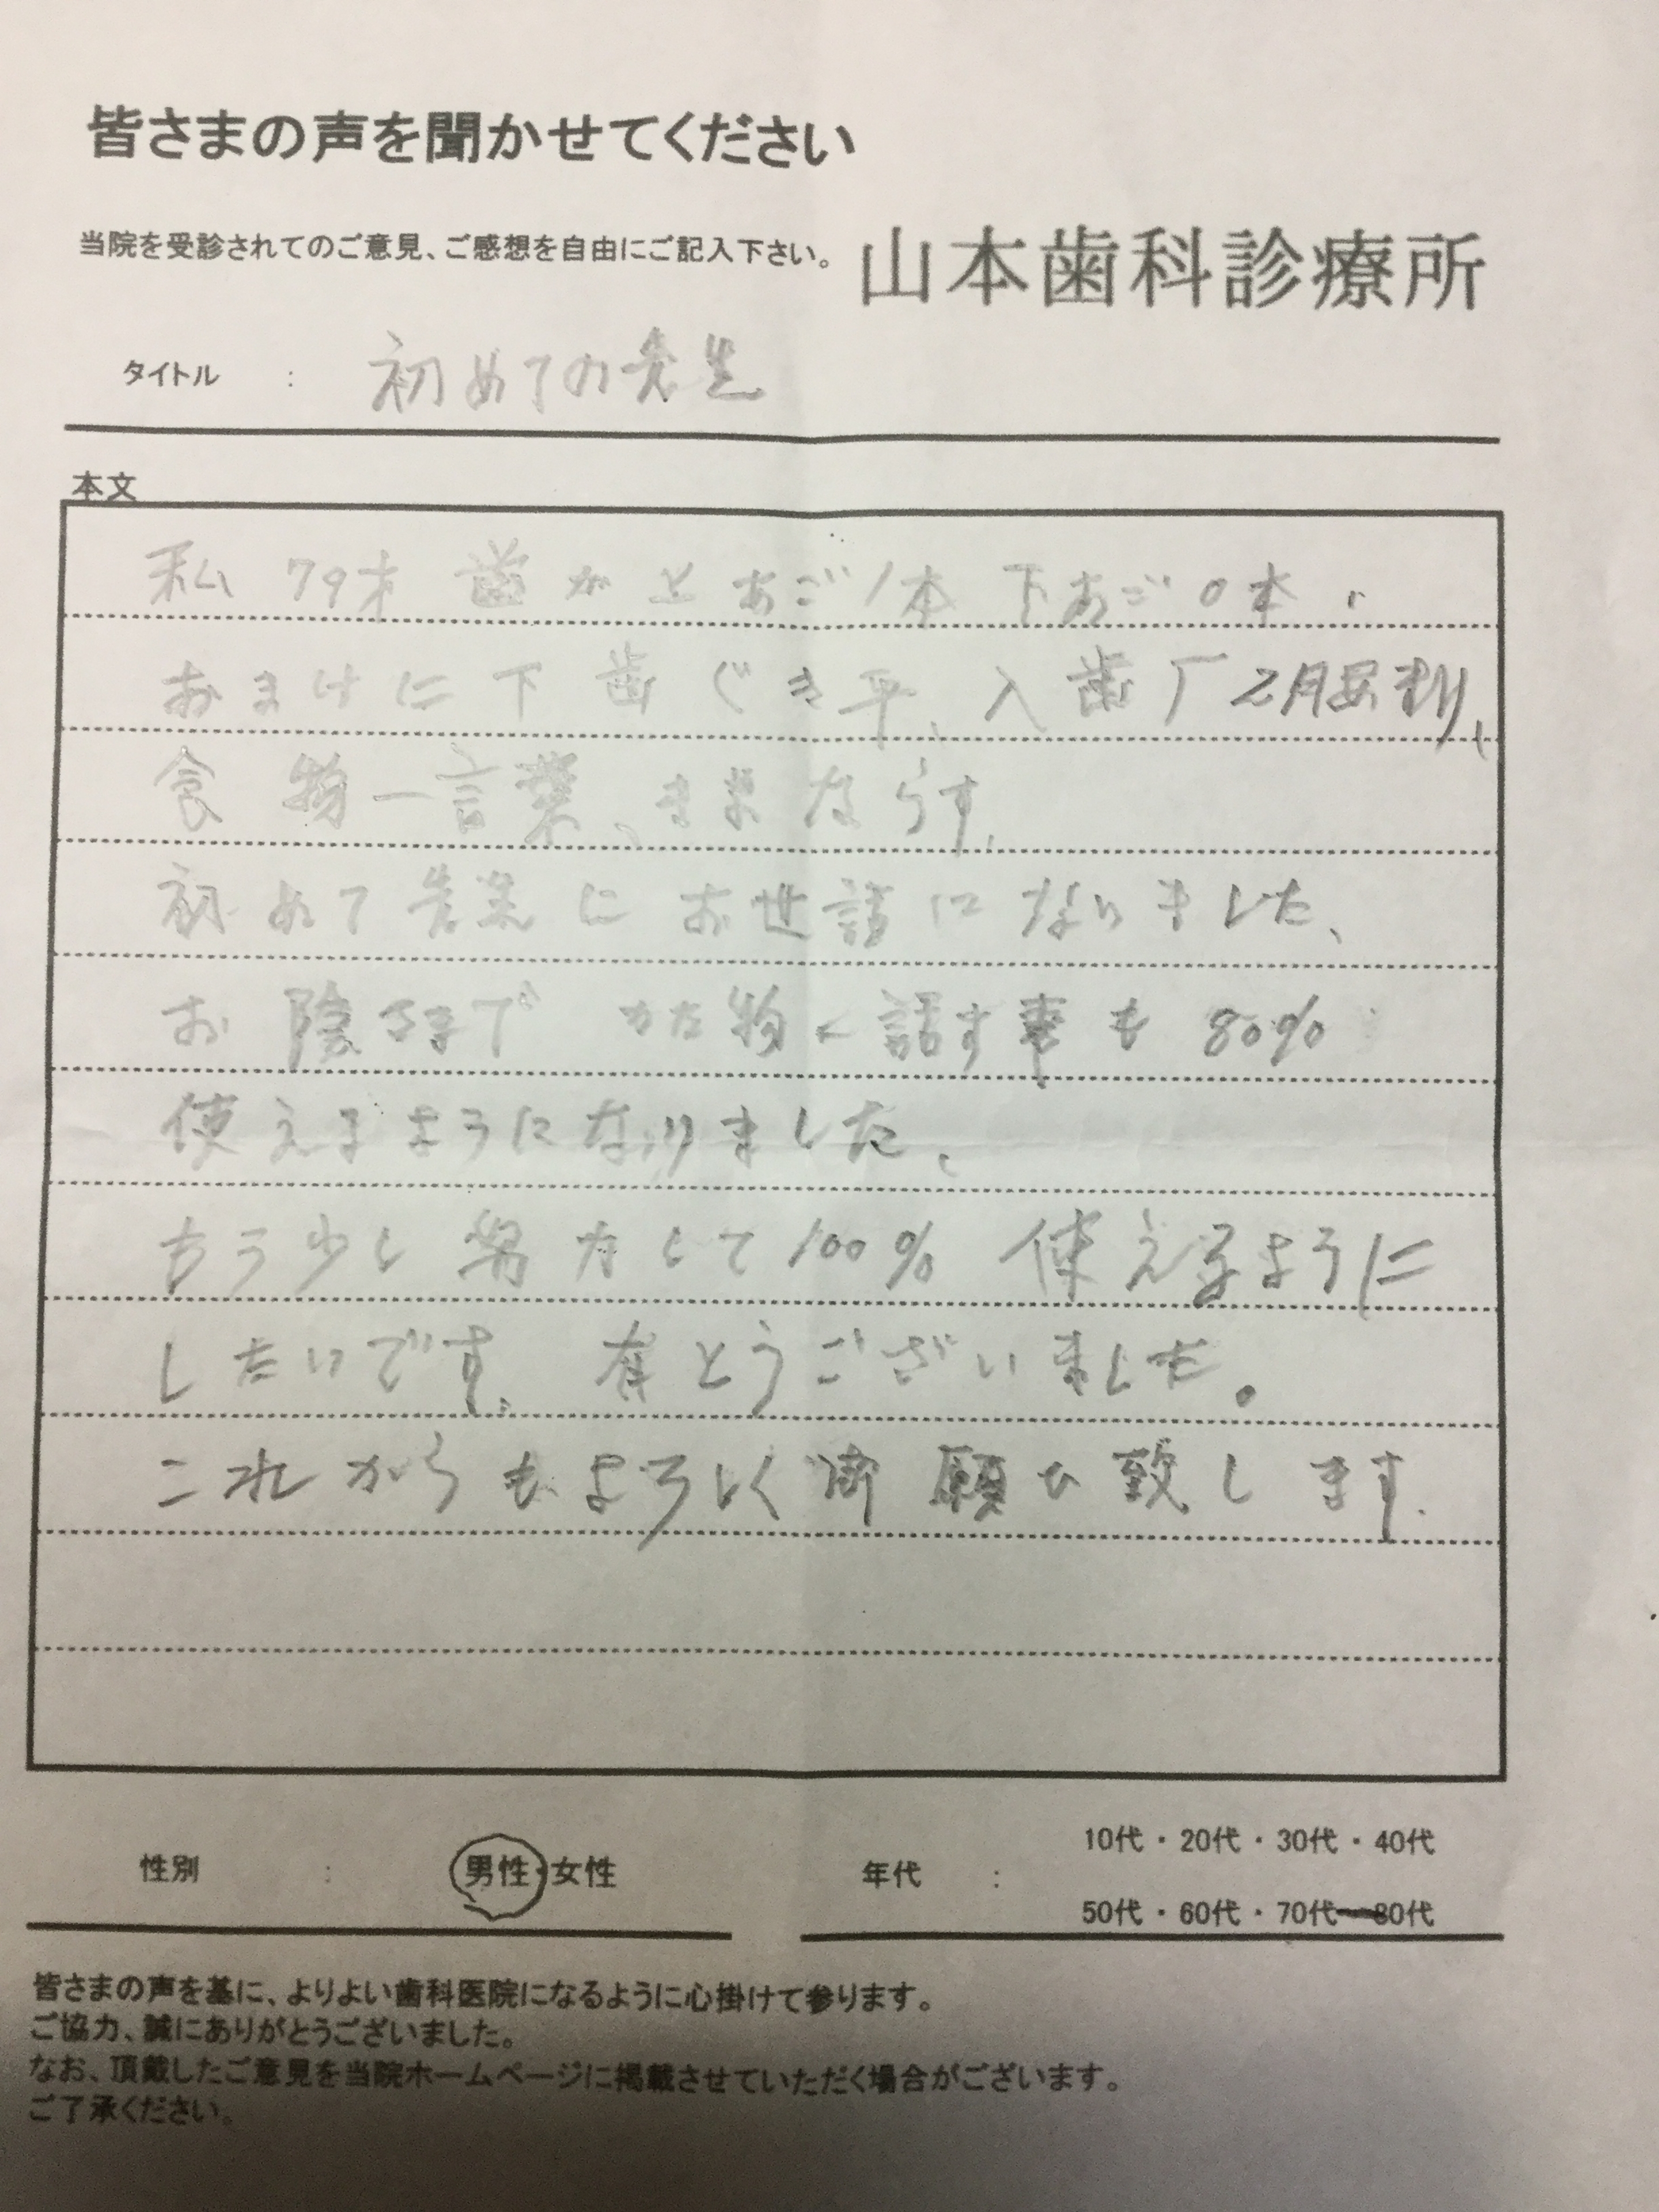 皆さまの声を聞かせてください
当院を受診されてのご意見、ご感想を自由にご記入下さい。 山本歯科診療所
タイトル : 初めての先生
本文
私 79才 歯が上あご1本 下あご0本、
おまけに下歯ぐき平、入歯
食物一言葉、ままならす、
初めて先生にお世話になりました、
お陰さまで かた物 話す事も 80%
使えるようになりました、
もう少し努力して100% 使えるように
したいです、有とうございました。
これからもよろしく御願い致します.
性別 : 男性・女性
年代 : 10代・20代・30代・40代
50代・60代・70代 80代
皆さまの声を基に、よりよい歯科医院になるように心掛けて参ります。
ご協力、誠にありがとうございました。
なお、頂戴したご意見を当院ホームページに掲載させていただく場合がございます。
ご了承ください。